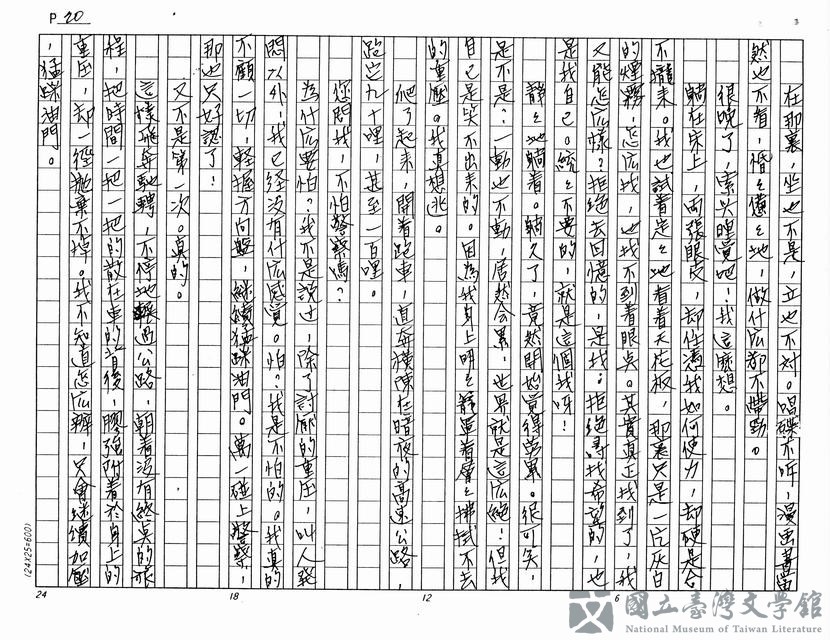 P 20
3
在那裏，坐也不是，立也不対。唱碟不听，漫画書當
然也不看，惛々懂々地，做什広都不帶勁。
很晚了，索兴睡覚吧！我這麽想。
躺在床上，両張眼皮，却任憑我如何使力，却硬是合
不攏来。我也試着定々地看着天花板，那裏只是一片灰白
的煙霧，怎広找，也找不到着眼点。其實真正找到了，我
又能怎広樣？拒絕去回憶的，是我。拒絕尋找希望的，也
是我自己。統々不要的，就是這個我呀！
靜々地躺着。躺久了，竟然開始覚得労累。很可笑，
是不是？一動也不動，居然会累，世界就是這広絕！但我
自己是笑不出来的。因為我身上明々靜置着層々拂拭不去
的重壓。我真想逃。
爬了起来，開着跑車，直奔橫陳在暗夜的高速公路，
跑它九十哩，甚至一百哩。
您問我，不怕警察嗎？
為什広要怕？我不是說过，除了討厭的重压，叫人發
悶以外，我已経没有什広感覚。怕？我是不怕的。我真的
不顧一切，輕握方向盤，継續猛踩油門。萬一碰上警察，
那也只好認了！
又不是第一次。真的。
這樣飛奔馳騁，不停地輾過公路，朝着没有終点的旅
程，把時間一把一把的散在車的背後，膠強附着於身上的
重压，却一徑拋棄不掉。我不知道怎広辦，只會継續加壓
，猛踩油門。
(24X25=600)
24
18
12
6
國立臺灣文學館
National Museum of Taiwan Literature